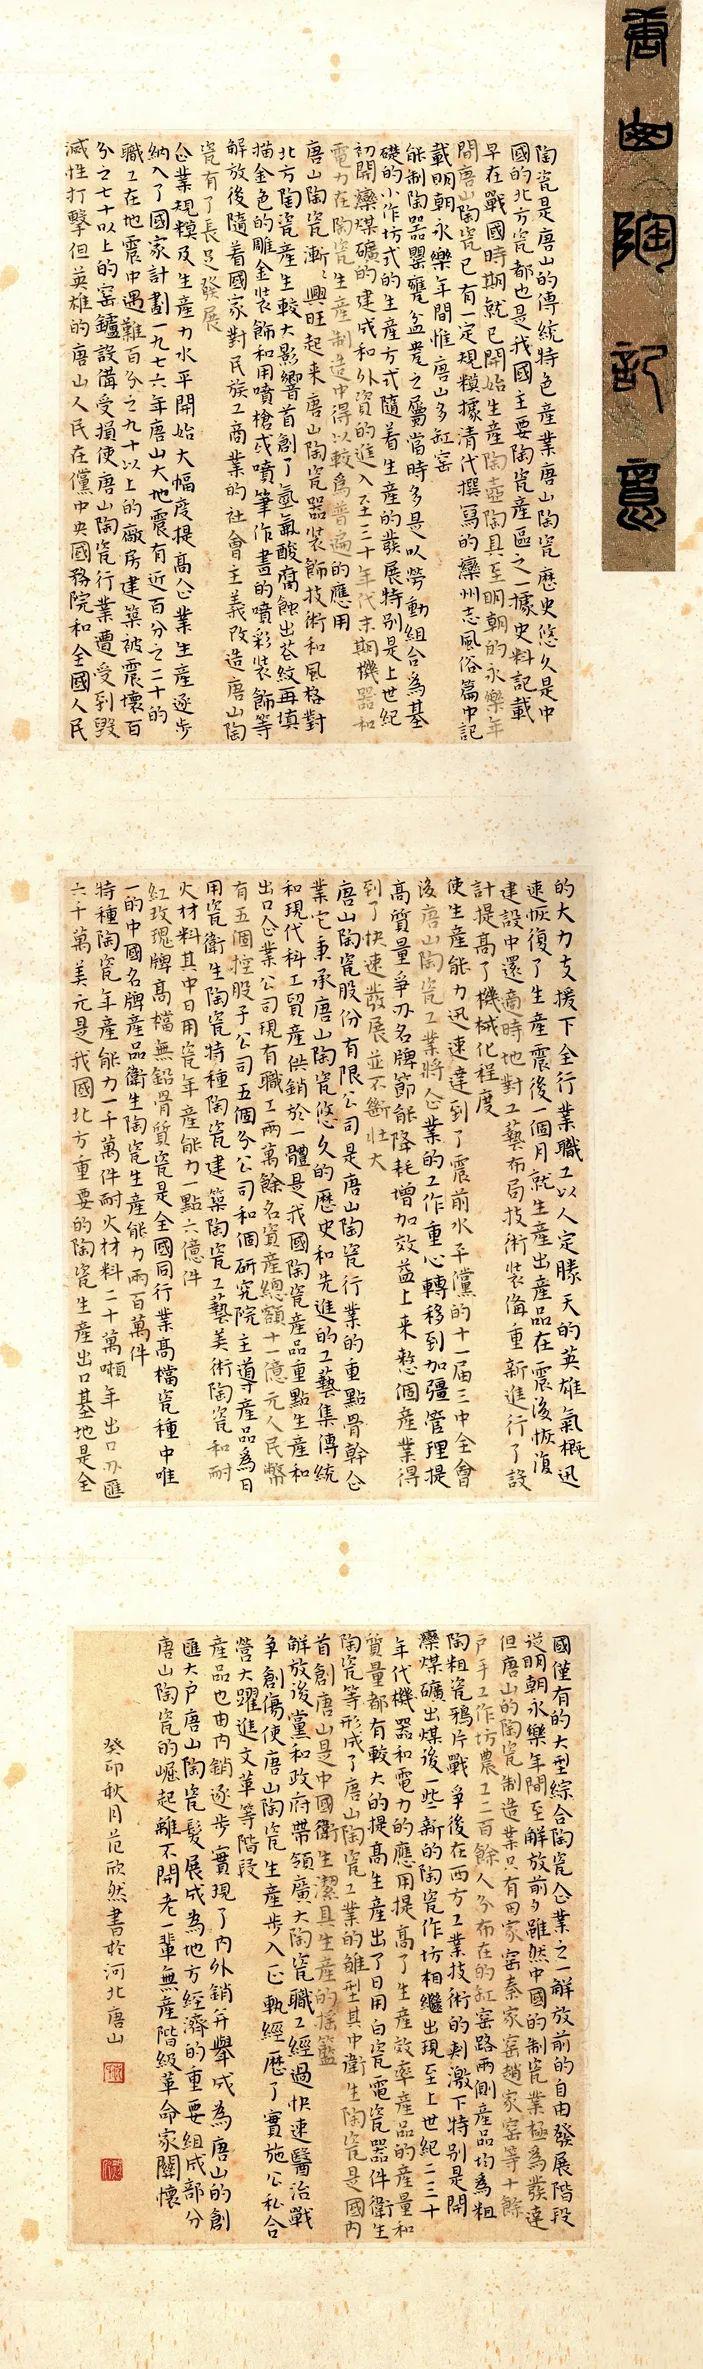 唐山陶記意
陶瓷是唐山的傳統特色産業唐山陶瓷歷史悠久是中
國的北方瓷都也是我國主要陶瓷産區之一據史料記載
早在戰國時期就已開始生産陶壺陶具至明朝的永樂年
間唐山陶瓷已有一定規模據清代撰寫的灤州志風俗篇中記
載明朝永樂年間惟唐山多缸窑
能制陶器罌甕盆瓮之屬當時多是以勞動組合爲基
礎的小作坊式的生産方式隨着生産的發展特别是上世紀
初開灤煤礦的建成和外資的進入至三十年代末期機器和
電力在陶瓷生産制造中得以較爲普遍的應用
唐山陶瓷漸漸興旺起来唐山陶瓷器装飾技術和風格對
北方陶瓷産生較大影響首創了氫氟酸腐蝕出花紋再填
描金色的雕金装飾和用噴槍或噴筆作畫的噴彩装飾等
解放後隨着國家對民族工商業的社會主義改造唐山陶
瓷有了長足發展
企業規模及生産力水平開始大幅度提高企業生産逐步
納入了國家計劃一九七六年唐山大地震有近百分之二十的
職工在地震中遇難百分之九十以上的廠房建築被震壞百
分之七十以上的窑鑪設備受損使唐山陶瓷行業遭受到毁
滅性打擊但英雄的唐山人民在黨中央國務院和全國人民
的大力支援下全行業職工以人定勝天的英雄氣概迅
速恢復了生産震後一個月就生産出産品在震後恢復
建設中還適時地對工藝布局技術装備重新進行了設
計提高了機械化程度
使生産能力迅速達到了震前水平黨的十一届三中全會
後唐山陶瓷工業將企業的工作重心轉移到加强管理提
高質量爭办名牌節能降耗增加效益上来整個産業得
到了快速發展並不斷壮大
唐山陶瓷股份有限公司是唐山陶瓷行業的重點骨幹企
業它秉承唐山陶瓷悠久的歷史和先進的工藝集傳統
和現代科工貿産供銷於一體是我國陶瓷産品重點生産和
出口企業公司現有職工兩萬餘名資産總額十一億元人民幣
有五個控股子公司五個分公司和個研究院主導産品爲日
用瓷衛生陶瓷特種陶瓷建築陶瓷工藝美術陶瓷和耐
火材料其中日用瓷年産能力一點六億件
紅玫瑰牌高檔無鉛骨質瓷是全國同行業高檔瓷種中唯
一的中國名牌産品衛生陶瓷生産能力兩百萬件
特種陶瓷年産能力一千萬件耐火材料二十萬噸年出口办匯
六千萬美元是我國北方重要的陶瓷生産出口基地是全
國僅有的大型綜合陶瓷企業之一解放前的自由發展階段
從明朝永樂年間至解放前夕雖然中國的制瓷業極爲發達
但唐山的陶瓷制造業只有田家窑秦家窑趙家窑等十餘
户手工作坊農工二百餘人分布在的缸窑路兩側産品均爲粗
陶粗瓷鴉片戰爭後在西方工業技術的刺激下特别是開
灤煤礦出煤後一些新的陶瓷作坊相繼出現至上世紀二三十
年代機器和電力的應用提高了生産效率産品的産量和
質量都有較大的提高生産出了日用白瓷電瓷器件衛生
陶瓷等形成了唐山陶瓷工業的雛型其中衛生陶瓷是國内
首創唐山是中國衛生潔具生産的摇籃
解放後黨和政府帶領廣大陶瓷職工經過快速醫治戰
争創傷使唐山陶瓷生産步入正軌經歷了實施公私合
營大躍進文革等階段
産品也由内銷逐步實現了内外銷并舉成爲唐山的創
匯大户唐山陶瓷發展成为地方經濟的重要組成部分
唐山陶瓷的崛起離不開老一輩無産階級革命家關懷
癸卯秋月范欣然書於河北唐山